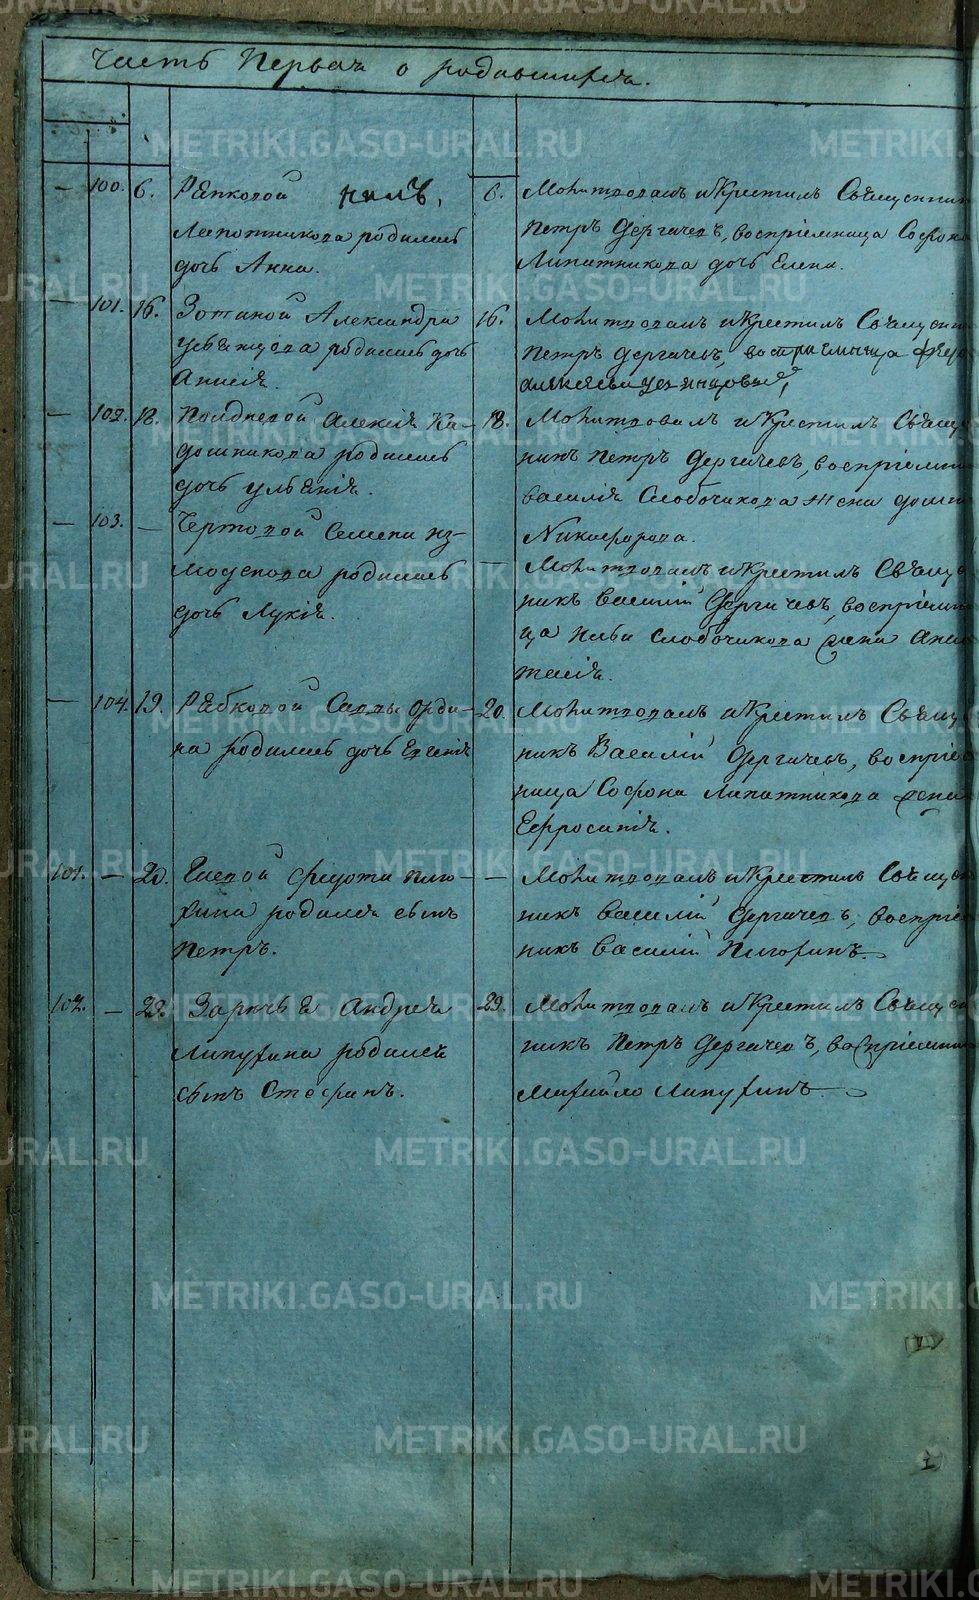 Часть Первая о родившихся.
— 100. 6. Рѣпковой
Лепотникова родилась
дочь Анна.
6. Молитвовалъ и Крестилъ Священник
Петръ Дергачевъ, воспріемница Софрона
Липатникова дочь Елена.
— 101. 16. Зотиной Александра
родилась дочь
Анисія.
16. Молитвовалъ и Крестилъ Священни
Петръ Дергачевъ, воспріемница
— 102. 18. Полдневой Алексія Ка-
дошникова родилась
дочь Ульянія.
18. Молитвовалъ и Крестилъ Священ
никъ Петръ Дергачевъ, воспріемни
Василія Слободчикова жена Домна
Никифорова.
— 103. — Чертовой Семена Из-
моденова родилась
дочь Лукія.
— Молитвовалъ и Крестилъ Священ
никъ Василій Дергачевъ, воспріемни
ца Слободчикова жена Анас
тасія.
— 104. 19. Рябковой Саввы Орди-
на родилась дочь Евгенія
20. Молитвовалъ и Крестилъ Свящ
никъ Василій Дергачевъ, воспріем
ница Софона Липатникова жена
Ефросинія.
101. — 20. Елевой Федота Плю-
хина родился сынъ
Петръ.
— Молитвовалъ и Крестилъ Священ
никъ Василій Дергачевъ, воспріем
никъ Василій Пигоринъ.
102. — 29. Зарячья Андрея
Липухина родился
сынъ Стефанъ.
29. Молитвовалъ и Крестилъ Священ
никъ Петръ Дергачевъ, воспріемни
Михайло Липухинъ
METRIKI.GASO-URAL.RU